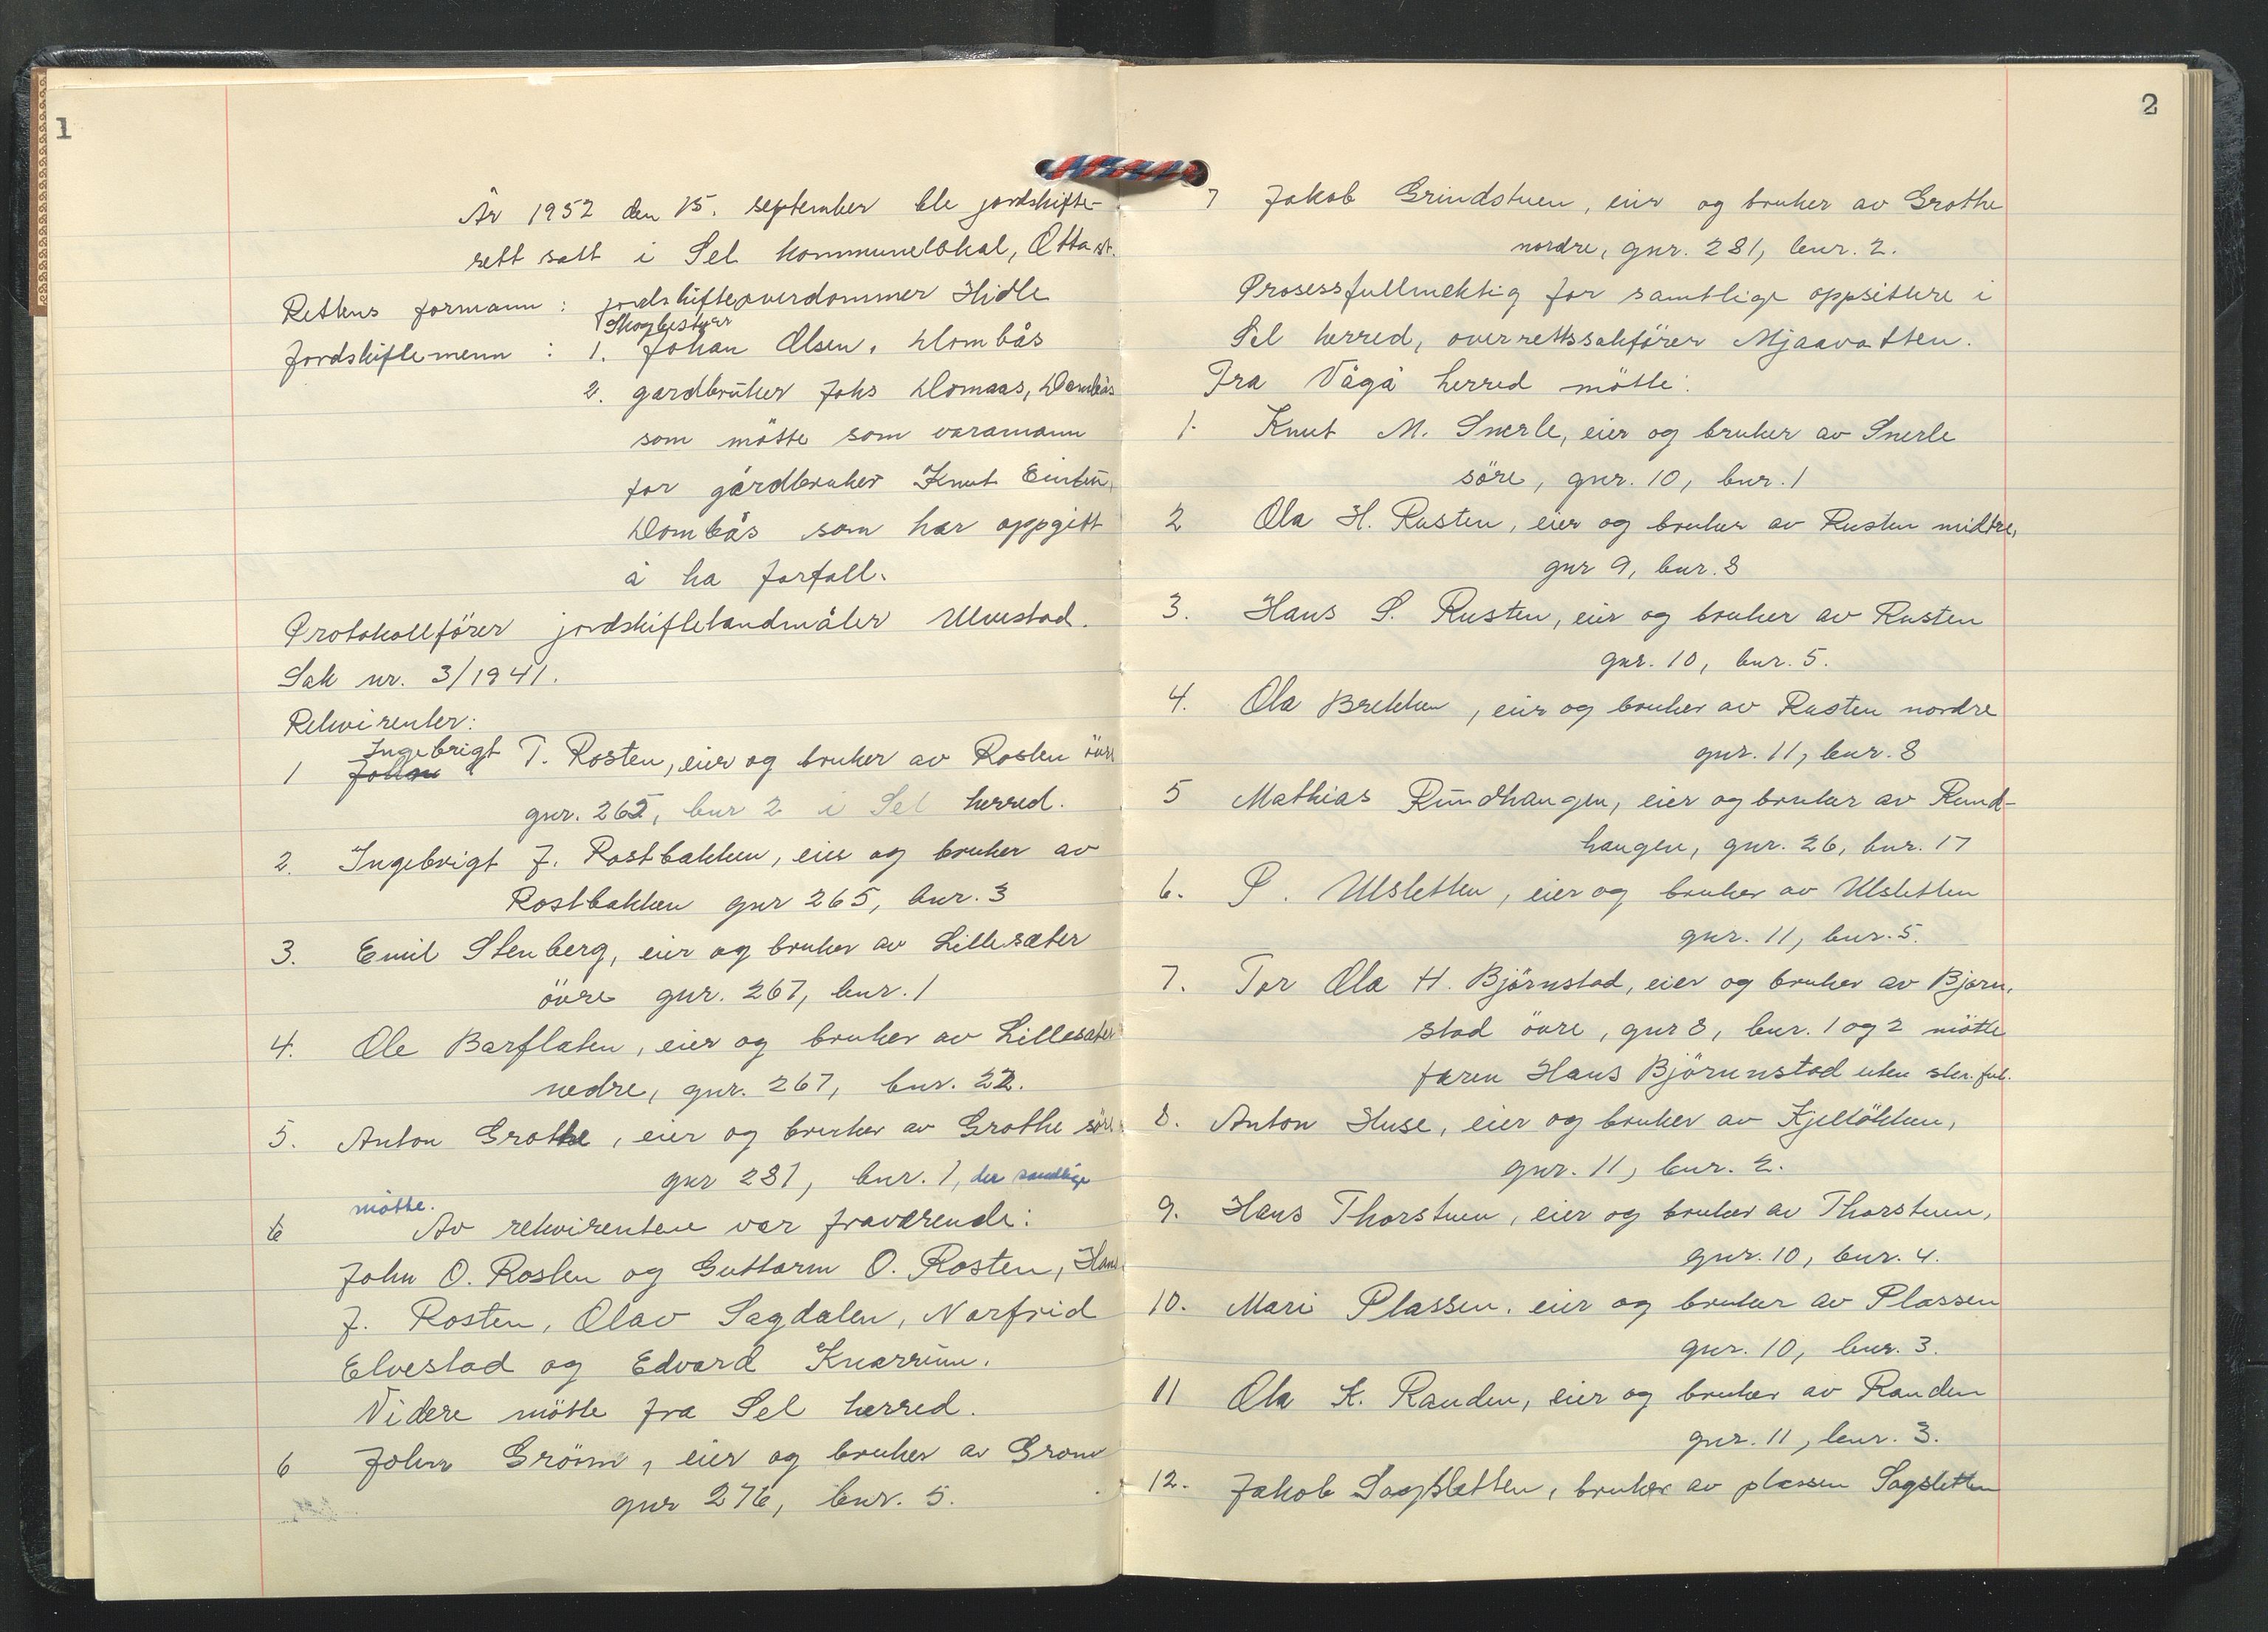 1
År 1952 den 15. september ble jordskifte-
rett satt i Sel kommunelokal, Otta st.
Rettens formann : jordskifteoverdommer Hidle
Skogbestyrer
Jordskiftemenn : 1. Johan Olsen, Dombås
2. gardbruker Johs Domaas, Dombås
som møtte som varamann
for gårdbruker Knut Einbu,
Dombås som har oppgitt
å ha forfall.
Protokollfører jordskiftelandmåler Ulvestad.
Sak nr. 3/1941.
Rekvirenter:
Ingebrigt
1 Johan T. Rosten, eier og bruker av Rosten øvre
gnr. 265, bnr 2 i Sel herred.
2. Ingebrigt J. Rostbakken, eier og bruker av
Rostbakken gnr 265, bnr. 3
3. Emil Stenberg, eier og bruker av Lillesæter
øvre gnr. 267, bnr. 1
4. Ole Barflaten, eier og bruker av Lillesæter
nedre, gnr. 267, bnr. 22.
5. Anton Grothe, eier og bruker av Grothe søre
gnr 281, bnr. 1, der samtlige
møtte.
6 Av rekvirentene var fraværende:
John O. Rosten og Guttorm O. Rosten, Hans
J. Rosten, Olav Sagdalen, Narfrid
Elvestad og Edvard Knarrum.
Videre møtte fra Sel herred.
6 John Grøm, eier og bruker av Grøm
gnr 276, bnr. 5.
2
7 Jakob Grindstuen, eier og bruker av Grothe
nordre, gnr. 281, bnr. 2.
Prosessfullmektig for samtlige oppsittere i
Sel herred, overrettssakfører Mjaavatten.
Fra Vågå herred møtte:
1. Knut M. Snerle, eier og bruker av Snerle
søre, gnr. 10, bnr. 1
2 Ola H. Rusten, eier og bruker av Rusten midtre,
gnr 9, bnr. 8
3. Hans S. Rusten, eier og bruker av Rusten
gnr. 10, bnr. 5.
4. Ola Brekken, eier og bruker av Rusten nordre
gnr. 11, bnr. 8
5 Mathias Rundhaugen, eier og bruker av Rund-
haugen, gnr. 26, bnr. 17
6. P. Ulsletten, eier og bruker av Ulsletten
gnr. 11, bnr. 5.
7. For Ola H. Bjørnstad, eier og bruker av Bjørn-
stad øvre, gnr 8, bnr. 1 og 2 møtte
faren Hans Bjørnnstad uten skr. ful.
8. Anton Huse, eier og bruker av Kjelløkken,
gnr. 11, bnr. 2.
9. Hans Thorstuen, eier og bruker av Thorstuen,
gnr. 10, bnr. 4.
10. Mari Plassen, eier og bruker av Plassen
gnr. 10, bnr. 3.
11 Ola K. Randen, eier og bruker av Randen
gnr. 11, bnr. 3.
12. Jakob Sagsletten, bruker av plassen Sagsletten